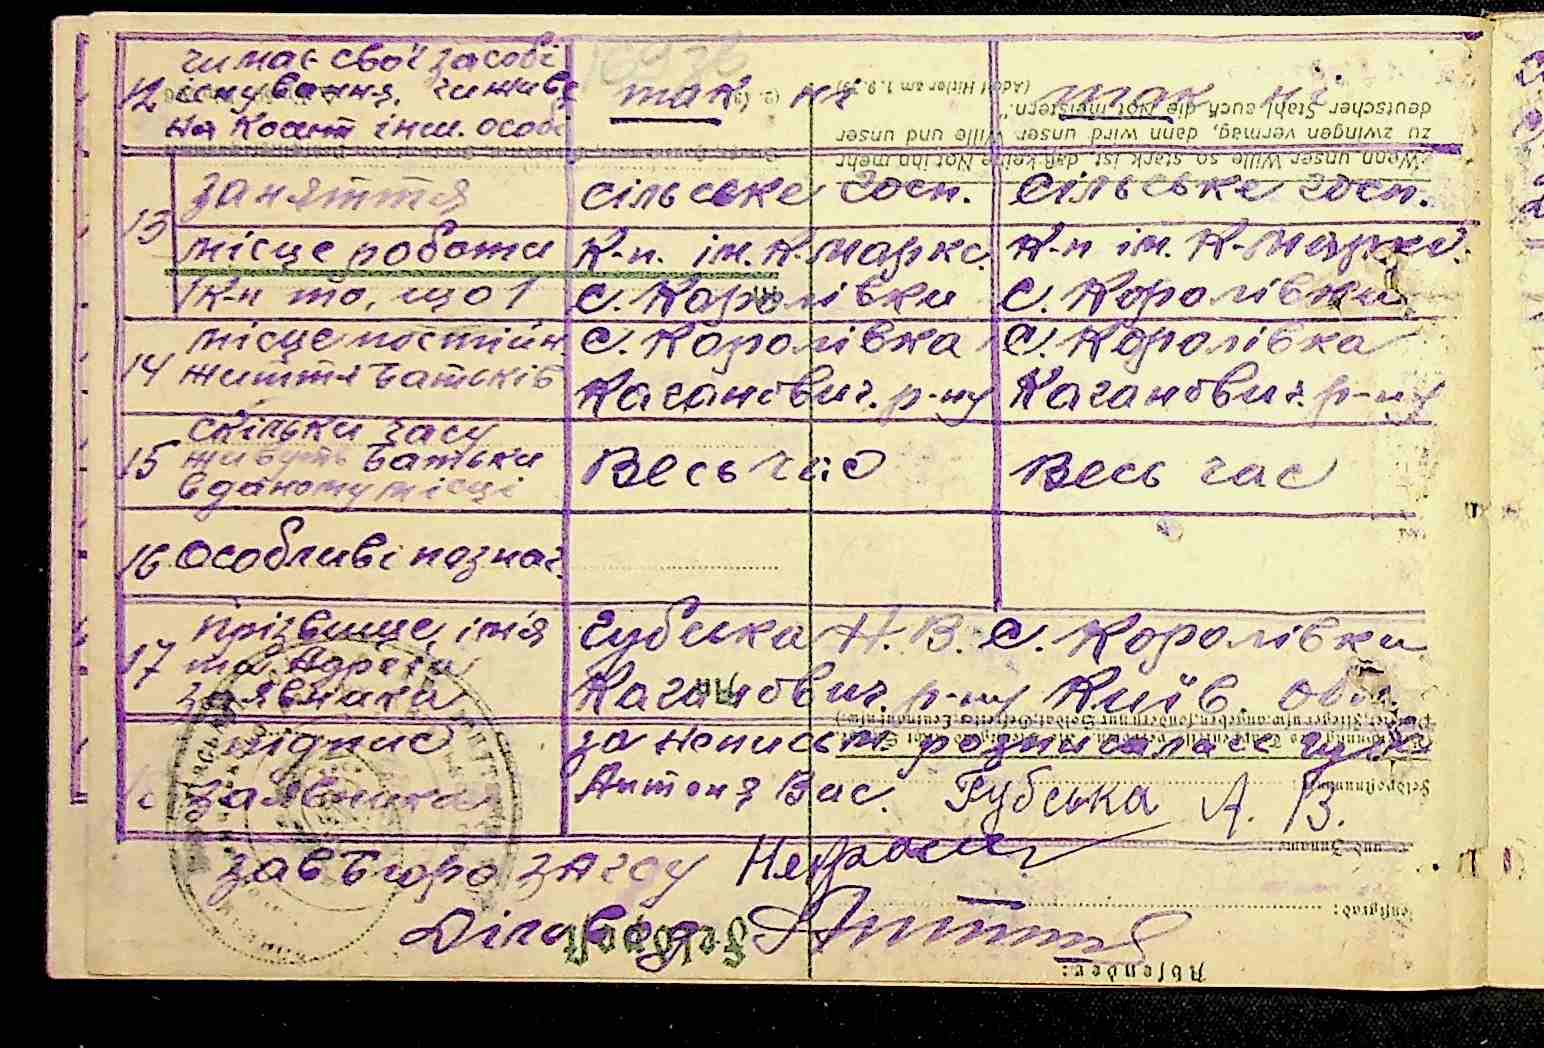 чи має свої засоби
12 існування, чи живе так ні так ні
на кошт інш. особи
13 заняття сільське госп. сільське госп.
місце роботи К-п. ім. К. Маркс. К-п ім. К. Маркс.
с. Королівки с. Королівки
місце постійн. с. Королівка с. Королівка
14 життя батьків Каганович. р-ну Каганович. р-ну
скільки часу
15 живуть батьки Весь час Весь час
в даному місці
16 Особливі познач.
прізвище, ім'я Губська Н. В. с. Королівки
17 та адреса Каганович. р-ну Київ. обл.
заявника
підпис за неписьм. розписалась Губська
заявника Антоня Вас. Губська А. В.
Зав бюро загсу
Діловод
"Wenn unser Wille so stark ist, daß keine Not ihn mehr
zu zwingen vermag, dann wird unser Wille und unser
deutscher Stahl auch die Not meistern."
(Adolf Hitler am 1. 9. 39)
Feldpost
Absender:
Dienstgrad:
Feldpostnummer: